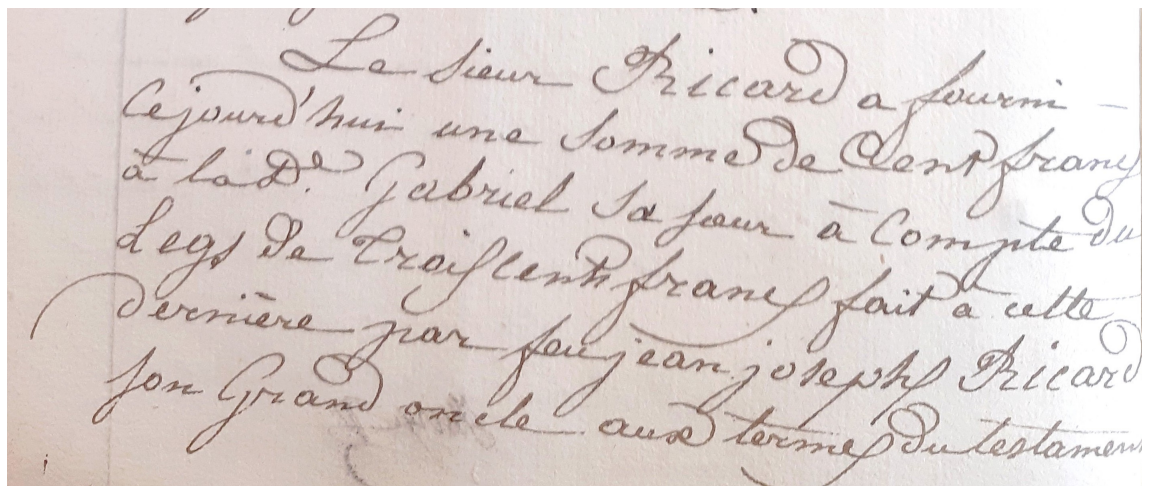 Le sieur Ricard a fourni —
Cejourd'hui une somme de Cent francs
à lad.e Gabriel sa sœur à Compte du
Legs de Trois cents francs fait à cette
dernière par feu jean joseph Ricard
son Grand oncle aux termes du testament